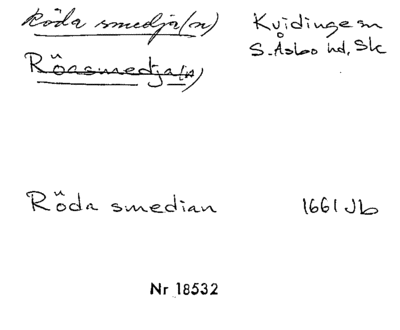 Röda smedja(n) Kvidinge sn
S. Åsbo hd, Sk
Rödasmedja(n)
Röda smedian 1661 Jb
Nr 18532